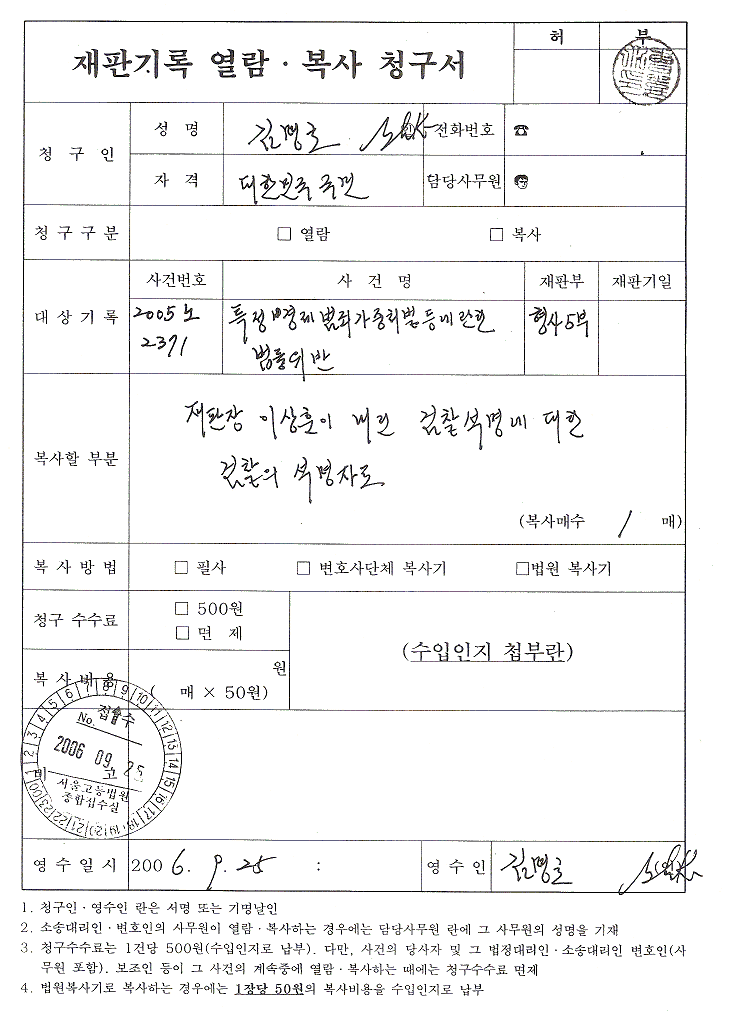 재판기록 열람 · 복사 청구서
허 부
청 구 인
성 명
김명호
전화번호 ☎
자 격
대한민국 국민
담당사무원
청 구 구 분
□ 열람 □ 복사
대 상 기 록
사건번호 사 건 명 재판부 재판기일
2005노
2371
특정경제범죄가중처벌등에관한
법률위반
형사5부
복사할 부분
재판장 이상훈이 내린 검찰석명에 대한
검찰의 석명자료
(복사매수 1 매)
복 사 방 법
□ 필사 □ 변호사단체 복사기 □법원 복사기
청구 수수료
□ 500원
□ 면 제
(수입인지 첩부란)
복 사 비 용
원
( 매 × 50원)
비 고
No. 접수
2006 09. 25
서울고등법원
종합접수실
영 수 일 시
2006. 9. 25 :
영 수 인
김명호
1. 청구인 · 영수인 란은 서명 또는 기명날인
2. 소송대리인 · 변호인의 사무원이 열람 · 복사하는 경우에는 담당사무원 란에 그 사무원의 성명을 기재
3. 청구수수료는 1건당 500원(수입인지로 납부). 다만, 사건의 당사자 및 그 법정대리인 · 소송대리인 변호인(사
무원 포함). 보조인 등이 그 사건의 계속중에 열람 · 복사하는 때에는 청구수수료 면제
4. 법원복사기로 복사하는 경우에는 1장당 50원의 복사비용을 수입인지로 납부